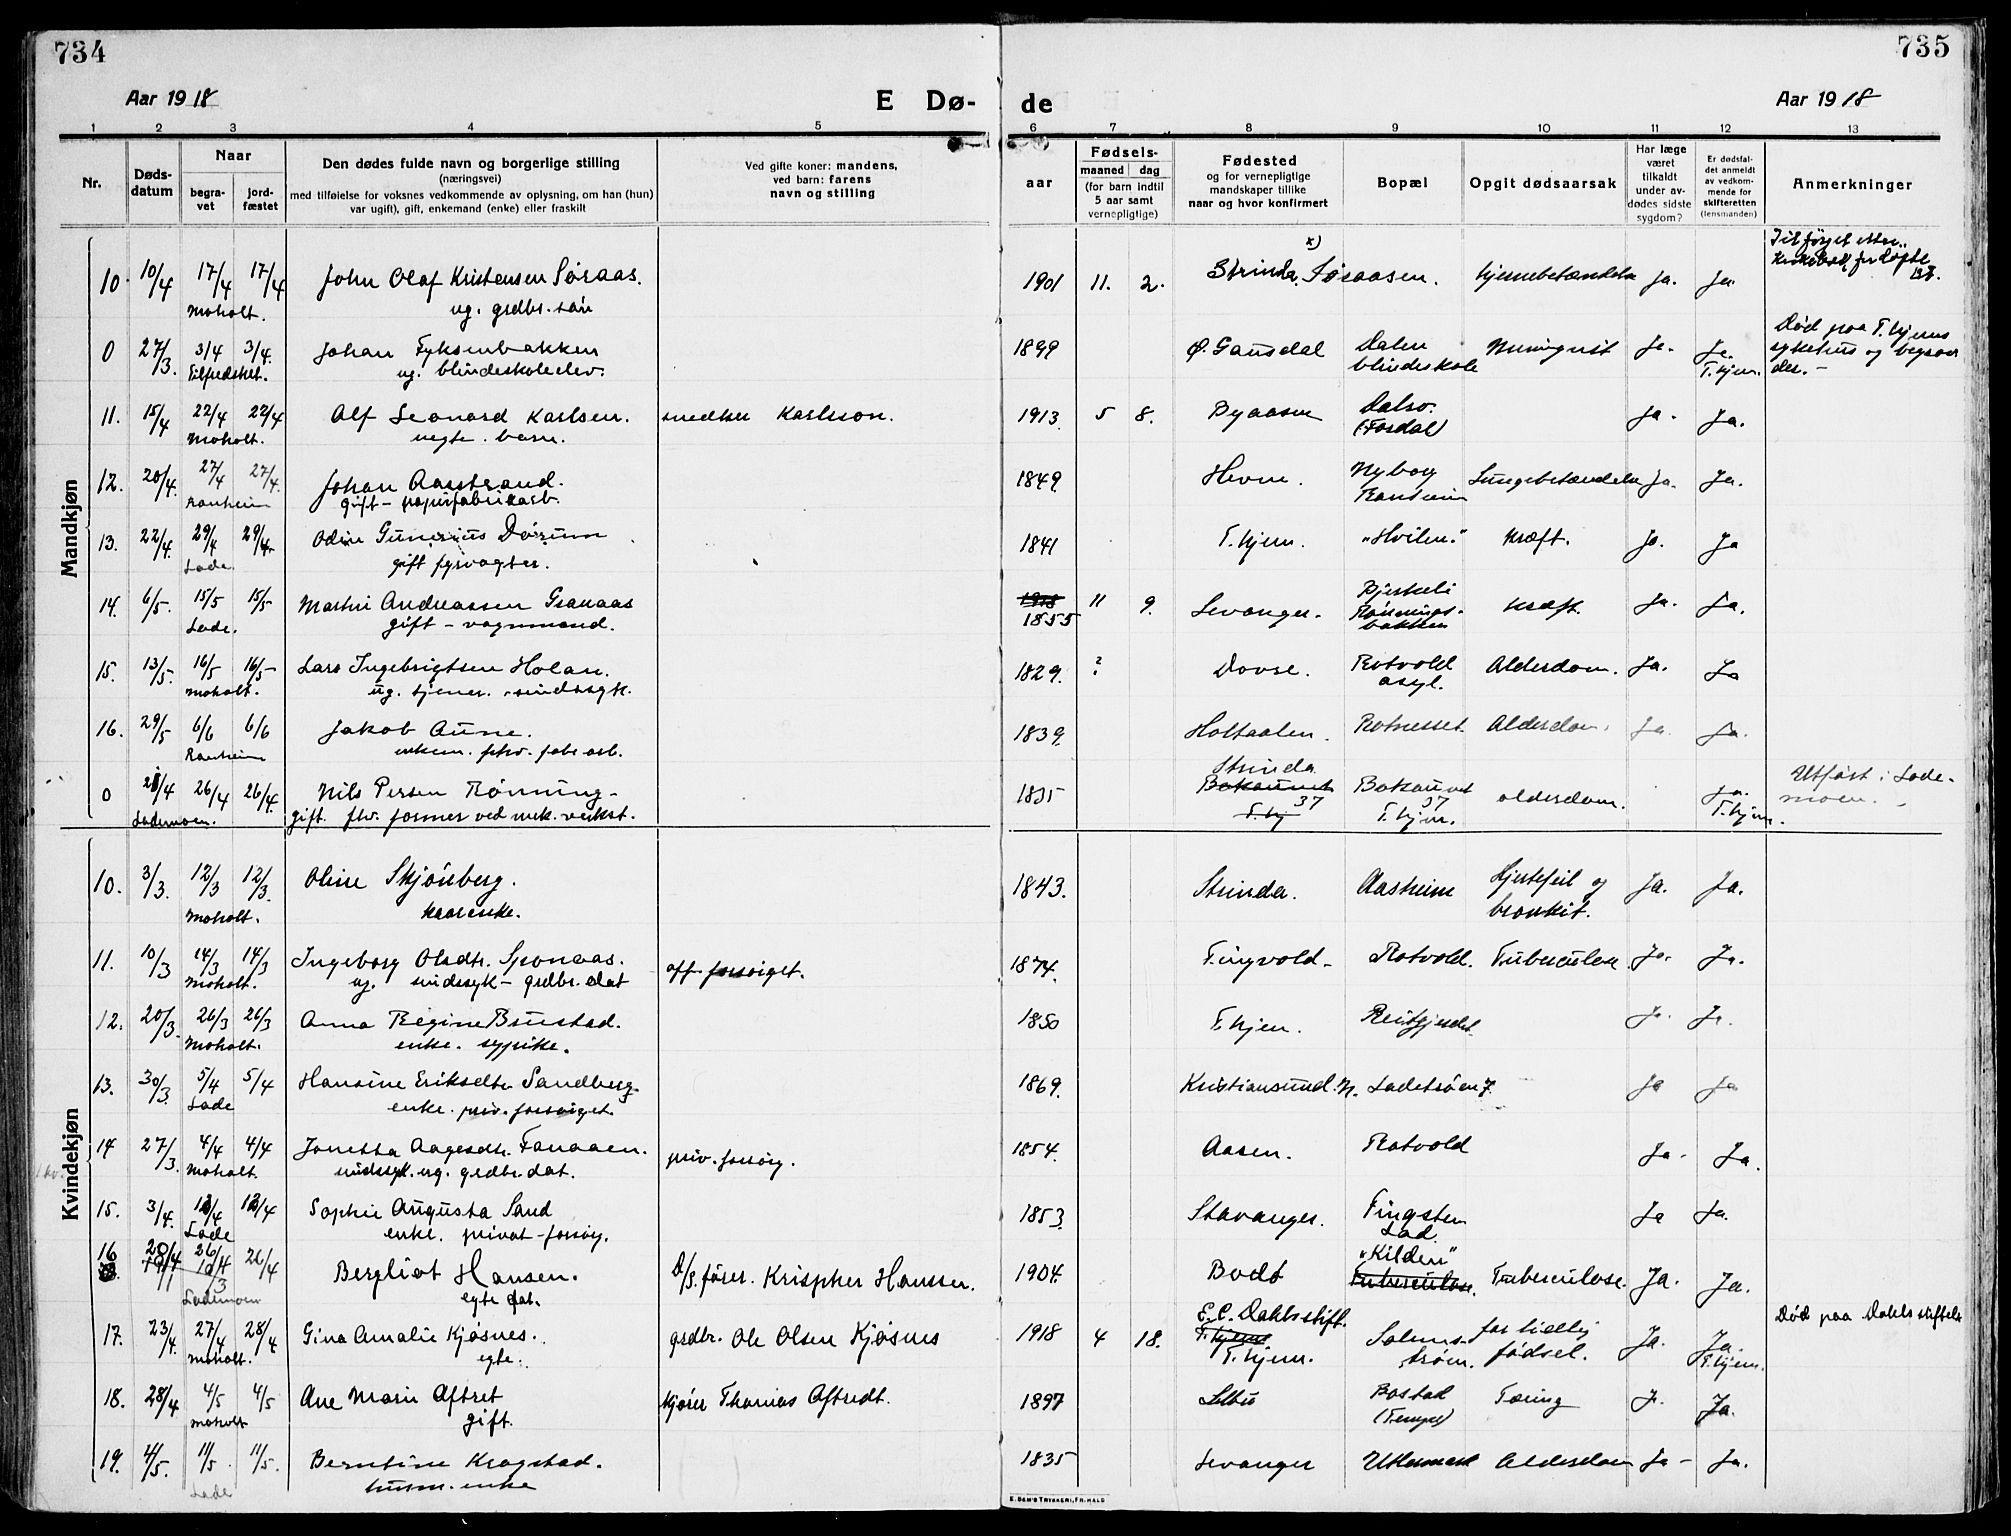 734
735
Aar 1918
E Dø-
de
Aar 1918
1 2 3 4 5 6 7 8 9 10 11 12 13
Nr.
Døds-
datum
Naar
begra-
vet
jord-
fæstet
Den dødes fulde navn og borgerlige stilling
(næringsvei)
med tilføielse for voksnes vedkommende av oplysning, om han (hun)
var ugift), gift, enkemand (enke) eller fraskilt
Ved gifte koner: mandens,
ved barn: farens
navn og stilling
Fødsels-
aar
maaned dag
(for barn indtil
5 aar samt
vernepligtige)
Fødested
og for vernepligtige
mandskaper tillike
naar og hvor konfirmert
Bopæl
Opgit dødsaarsak
Har læge
været
tilkaldt
under av-
dødes sidste
sygdom?
Er dødsfal-
det anmeldt
av vedkom-
mende for
skifteretten
(lensmanden)
Anmerkninger
Mandkjøn
10. 10/4 17/4 17/4 John Olaf Kristensen Søraas. 1901 11. 2. Strinda, Søraasen. hjernebetændelse Ja. Ja.
Moholt. ug. grdbr. søn
x)
0 27/3. 3/4 3/4. Johan Fyksenbakken 1899 Ø. Gausdal Dalen Ja. Ja. Død paa T.hjems
ug. blindeskoleelev. blindeskole T.hjem. sykehus og begraves
der. -
11. 15/4 22/4 22/4 Alf Leonard Karlsen. snedker Karlsson. 1913 5 8. Byaasen Dalsv. Ja. Ja.
Moholt. uegte barn. (Fosdal)
12. 20/4. 27/4 27/4. Johan Aastrand. 1849. Hevne. Nyborg Lungebetændelse Ja. Ja.
Ranheim gift - papirfabrikarb. Ranheim
13. 22/4. 29/4 29/4. Odin Gunerius Dørum 1841 T.hjem. "Hvilen." Kræft. Ja. Ja
Lade. gift fyrvogter.
14. 6/5. 15/5 15/5 Martin Andreassen Granaas 1918 11 9. Levanger. Bjerkeli Kræft. Ja. Ja.
Lade. gift - vognmand. 1855 Rønnings-
bakken
15. 13/5. 16/5 16/5 Lars Ingebrigtsen Holan. 1829. ? Dovre. Rotvold Alderdom. Ja. Ja
Moholt. ug. tjener. sindssyk. asyl.
16. 29/5 6/6 6/6 Jakob Aune. 1839. Holtaalen. Rotnesset. Alderdom. Ja. Ja.
Ranheim enkem. fhv. fabr arb.
0 21/4 26/4 26/4. Nils Persen Rønning- 1835 Strinda Bakaunet alderdom. Ja. Utført i Lade-
Lademoen. gift. fhv. former ved mek. verkst. Bakaunet 37 T.hj 37 T.hjem. T.hjem. moen. -
Kvindekjøn
10. 3/3. 12/3 12/3. Oline Skjønberg. 1843. Strinda. Aasheim Hjertefeil og Ja. Ja.
Moholt. kaarenke. bronkit.
11. 10/3 14/3 14/3 Ingeborg Olsdtr. Gronaas. off. forsørget. 1874. Tingvold- Rotvold. Tuberculose Ja. Ja.
Moholt. ug. sindssyk - grdbr. dat
12. 20/3. 26/3 26/3 Anna Regine Brustad. 1850 T.hjem. Reitgjerdet Ja. Ja.
Moholt. enke. sypike.
13. 30/3. 5/4 5/4 Hansine Eriksdtr Sandberg. 1869. Kristiansund. N. Ladetrøen 7. Ja Ja
Lade enke. priv. forsørget.
14 27/3. 4/4 4/4 Jonetta Aagesdtr. Fanaaen. priv. forsørg. 1854. Aasen. Rotvold Ja. Ja.
Moholt. sindssyk. ug. grdbr. dat.
15. 3/4. 12/4 12/4 Sophie Augusta Sand 1853. Stavanger. Ja Ja.
Lade enke. privat-forsørg. Lad.
16 20/4 26/4 26/4 Bergliot Hansen. D/S. fører. Krispher Hanssen. 1904. Bodø "Kilden" Tuberculose. Ja. Ja.
Lademoen egte dat. Tuberculose.
17. 23/4. 27/4 28/4 Gina Amalie Kjøsnes. grdbr. Ole Olsen Kjøsnes 1918 4 18. E. C. Dahls stift. for tidlig Ja. Ja. Død paa Dahls stiftelse
Moholt. egte. T.hjem T.hjem. fødsel. T.hjem.
18. 28/4 4/5 4/5 Ane Marie Aftret kjører Thomas Aftredt. 1897 Selbu Bostad Tæring Ja. Ja.
Moholt gift. (Tempe)
19. 4/5. 11/5. 11/5. Berntine Kragstad. 1835 Levanger Alderdom Ja - Ja.
Lade husm. enke
E. SEM'S TRYKKERI, FR.HALD